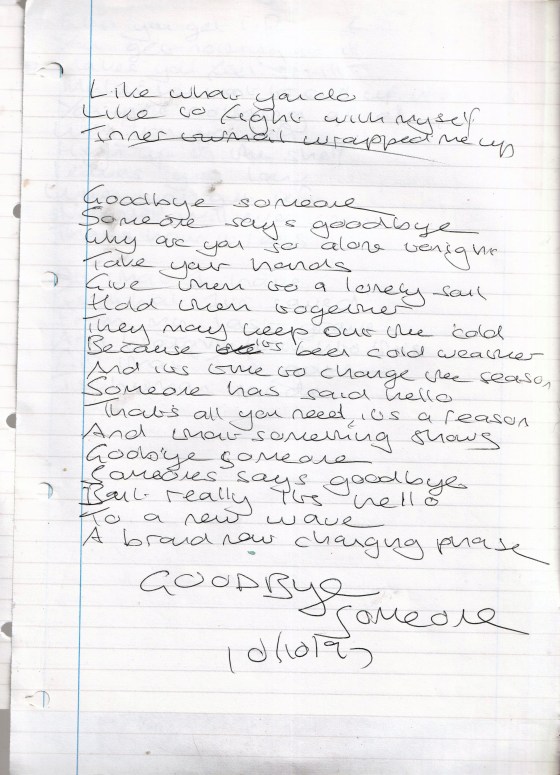 Like what you do
Like to fight with myself
Inner turmoil wrapped me up
Goodbye someone
Someone says goodbye
Why are you so alone tonight
Take your hands
Give them to a lonely soul
Hold them together
They may keep out the cold
Because its been cold weather
And its time to change the season
Someone has said hello
That's all you need, its a reason
And that something shows
Goodbye someone
Someones says goodbye
But really its hello
To a new wave
A brand new changing phrase
GOODBye
Someone
10/10/97